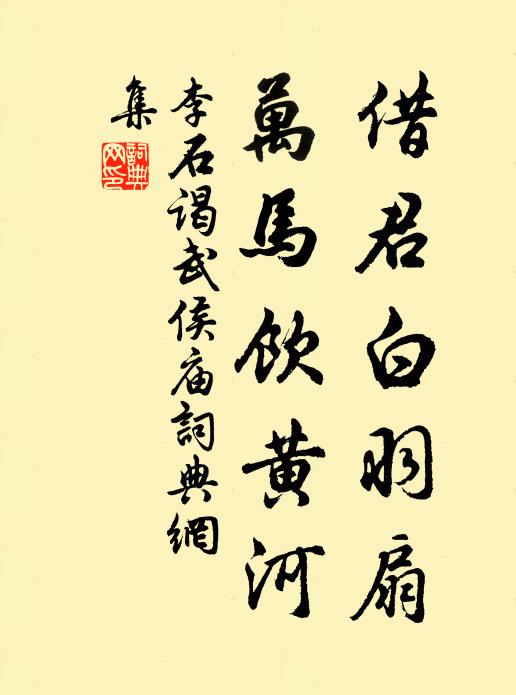 借君白羽扇
萬馬飲黄河
李石謁武侯庙詞典網
集
詞典
网印